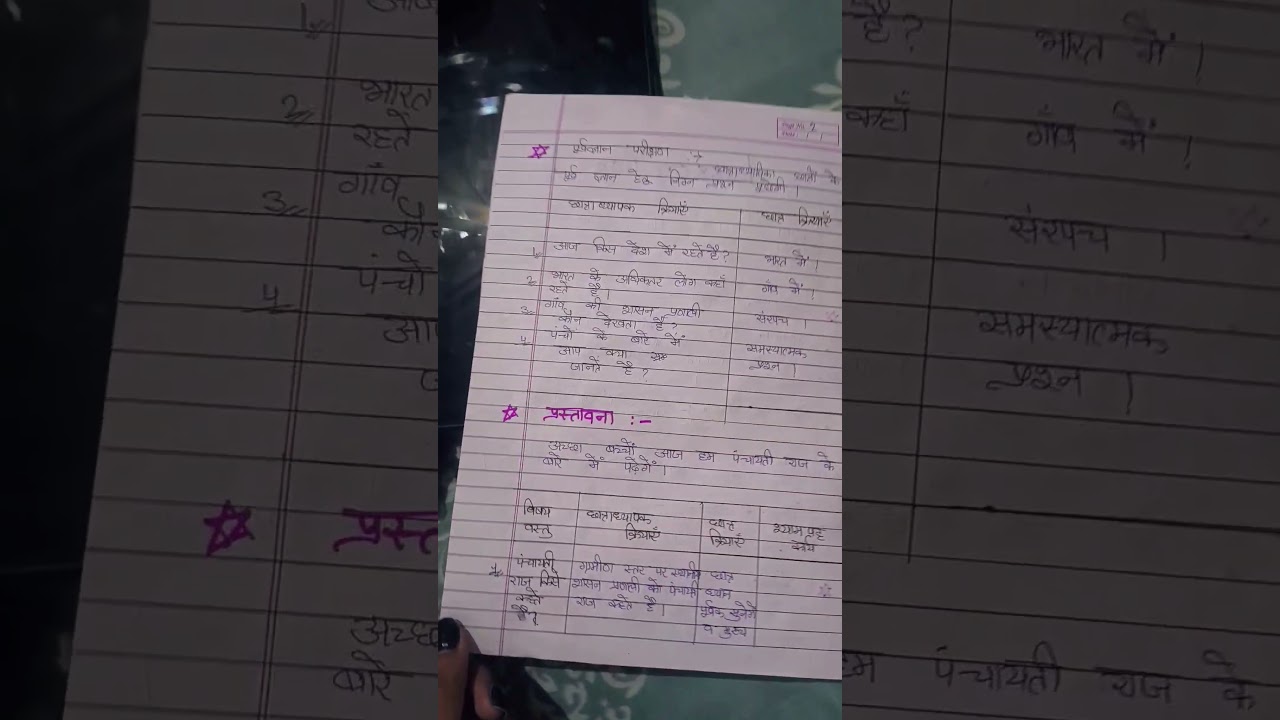 2
पूर्वज्ञान परीक्षण :→
छात्राध्यापिका छात्रों के
पूर्व ज्ञान हेतु निम्न प्रश्न पूछेगी ।
छात्राध्यापक क्रियाएँ छात्र क्रियाएँ
1. आज किस देश में रहते है? भारत में ।
2. भारत के अधिकतर लोग कहाँ गाँव में ।
रहते है ।
3. गाँव की शासन प्रणाली संरपच ।
कौन देखता है ?
4. पंचों के बारे में समस्यात्मक
आप क्या प्रश्न ।
जानते है ?
प्रस्तावना :-
अच्छा बच्चों आज हम पंचायती राज के
बारे में पढ़ेगें ।
विषय छात्राध्यापक छात्र श्यामपट्ट
वस्तु क्रियाएँ क्रियाएँ कार्य
1. पंचायती ग्रामीण स्तर पर स्थानीय छात्र
राज किसे शासन प्रणाली को पंचायती ध्यान
कहते राज कहते है । पूर्वक सुनेगे
है? व